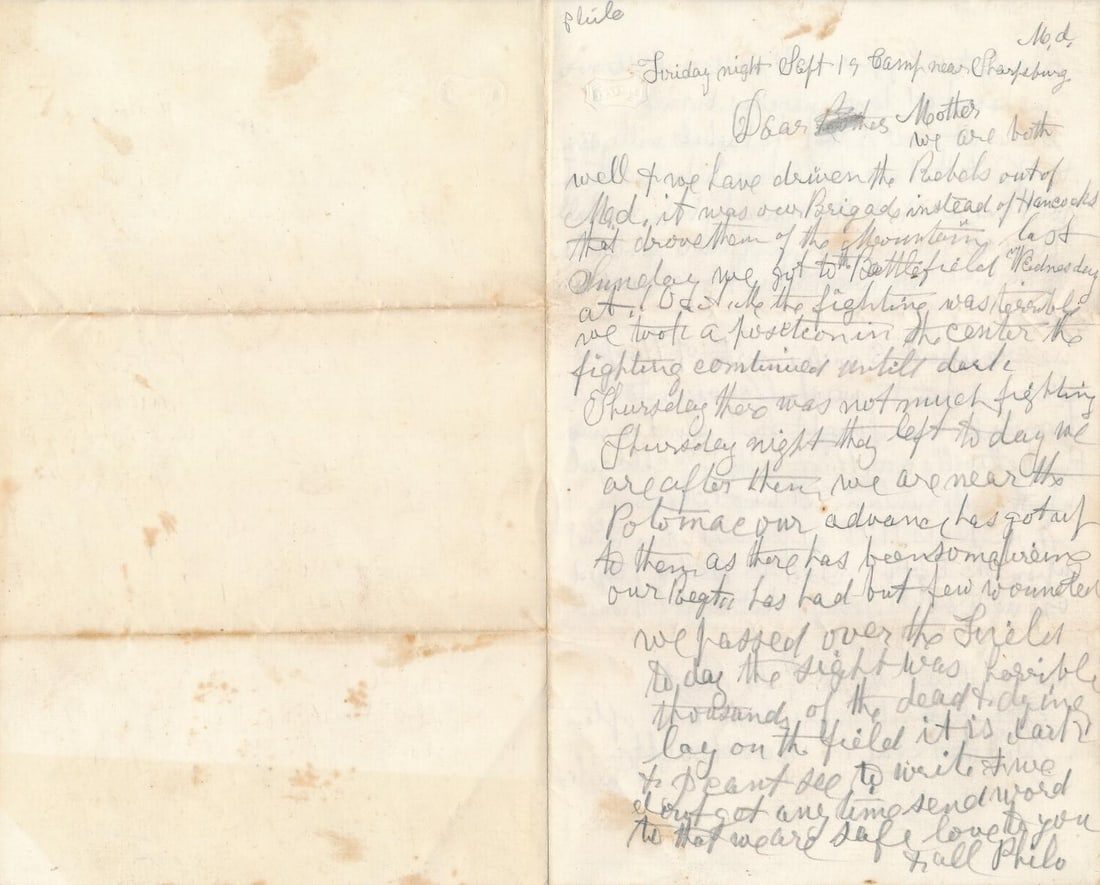 Philo
Md.
Friday night Sept 19 Camp near Sharpsburg
Dear Mother
we are both
well & we have driven the Rebels out of
Md. it was our Brigade instead of Hancocks
that drove them of the Mountain last
Sunday we got to the Battlefield Wednesday
at the fighting was terrible
we took a position in the center the
fighting continued untill dark
Thursday there was not much fighting
Thursday night they left to day we
are after them, we are near the
Potomac our advance has got up
to them as there has been some firing
our Regt has had but few wounded
we passed over the Field
to day the sight was horrible
thousands of the dead & dying
lay on the field it is dark
& I cant see to write & we
dont get any time send word
to that we are safe love to you
& all Philo